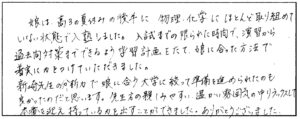 娘は、高3の夏休みの後半に、物理・化学にほとんど取り組めて
いない状態で入塾しました。入試までの限られた時間で、演習から
過去問対策までできるよう学習計画をたて、娘に合った方法で
着実に力をつけていただきました。
新崎先生の分析力で娘に合う大学に絞って準備を進められたのも
良かったのだと思います。先生方の親しみやすい、温かい雰囲気の中リラックスして
本番を迎え、持っている力を出すことができました。ありがとうございました。